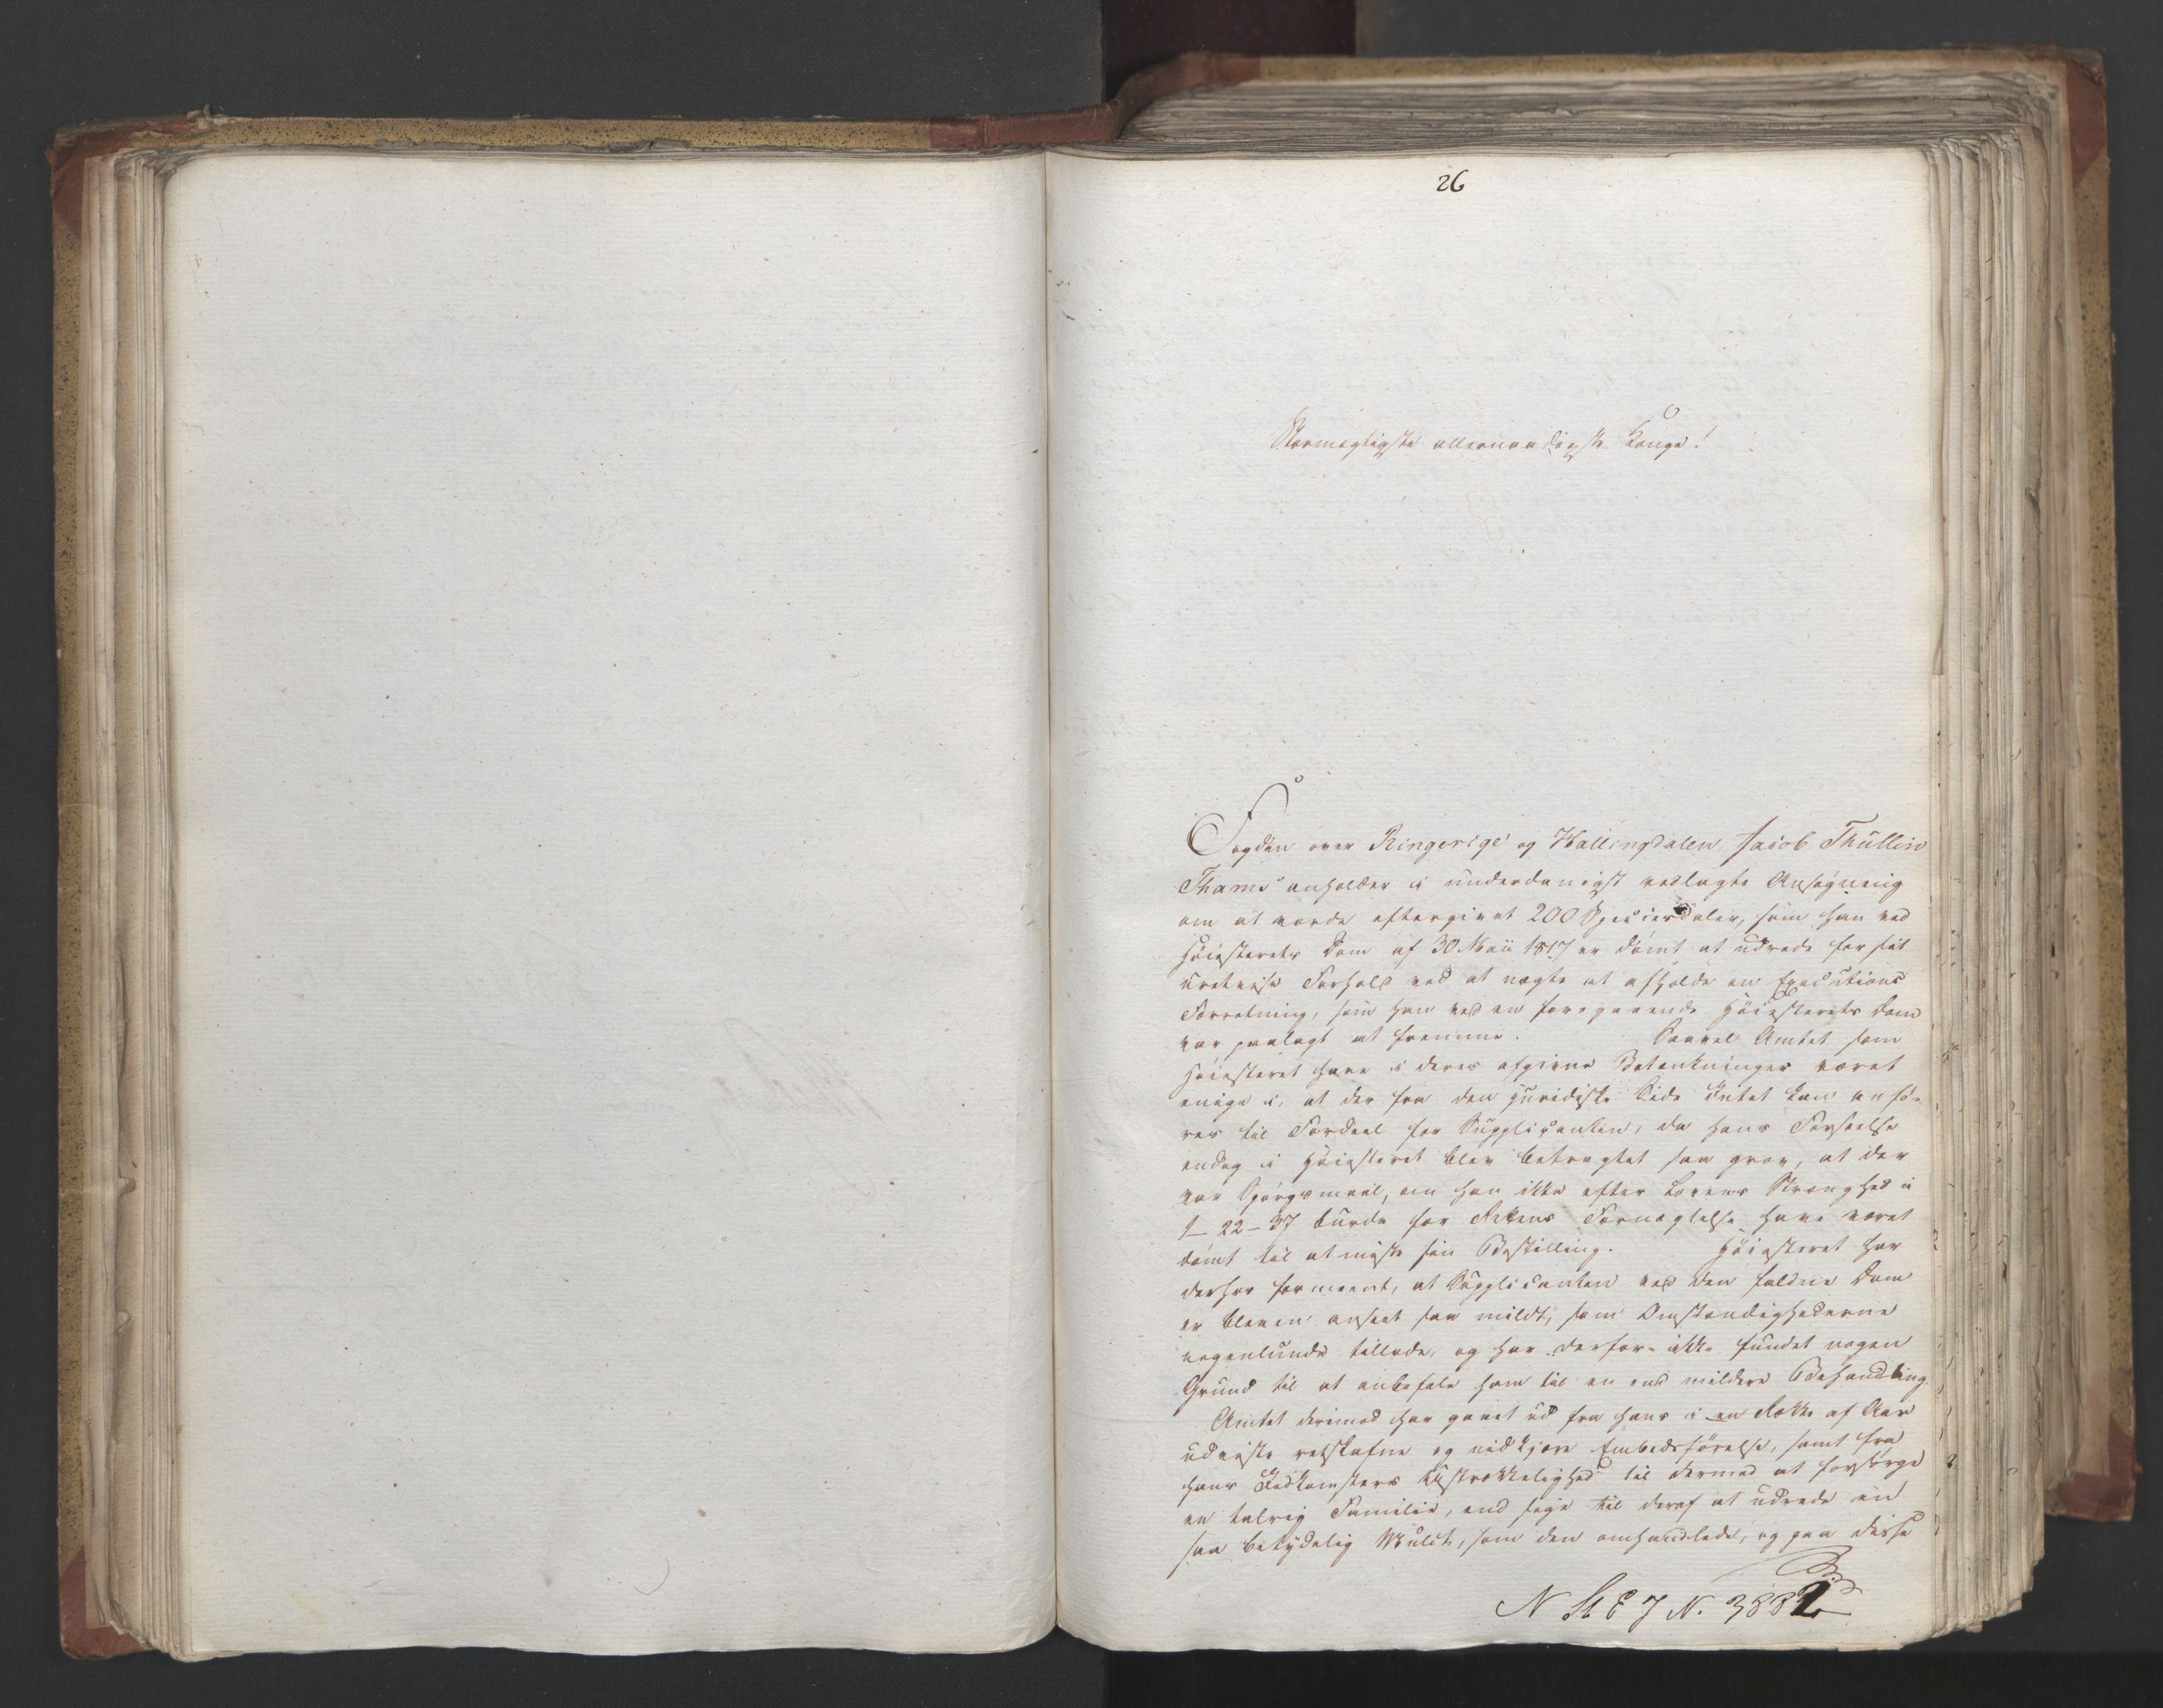 26
Stormægtigste allernaadigste Konge!
Fogden over Ringerige og Hallingdalen, Jacob Thullin
Thams anholder i underdanigst vedlagte Ansøgning
om at vorde eftergivet 200 Speciesdaler, som han ved
Høiesterets Dom af 30 Maii 1817 er dømt at udrede for sit
uretvise Forhold ved at nægte at afholde en Executions
Forretning, som han ved en foregaaende Høiesterets Dom
var paalagt at fremme. Saavel Amtet som
Høiesteret have i deres afgivne Betænkninger været
enige i, at der fra den juridiske Side Intet kan anfö-
res til Fordeel for Supplicanten, da hans Forseelse
endog i Høiesteret blev betragtet saa grov, at der
var Spørgsmaal, om han ikke efter Lovens Strænghed i
1-22-37 burde for Rettens Fornægtelse have været
dømt til at miste sin Bestilling. Høiesteret har
derhos formeent, at Supplicanten ved den faldne Dom
er bleven anseet saa mildt, som Omstændighederne
nogenlunde tillode, og har derfor ikke fundet nogen
Grund til at anbefale ham til en end mildere Behandling.
Amtet derimod har gaaet ud fra hans i en Række af Aar
udviste retskafne og nidkjære Embedsförelse, samt fra
hans Indkomsters Utilstrækkelighed til dermed at forsørge
en talrig Familie, end sige til deraf at udrede en
saa betydelig Mulct, som den omhandlede, og paa disse
N St E J N. 3882